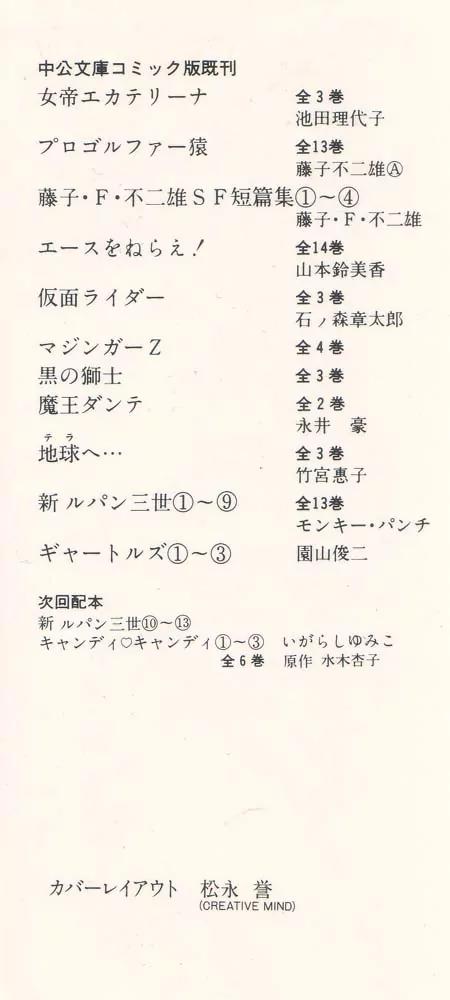 中公文庫コミック版既刊
女帝エカテリーナ 全3巻
池田理代子
プロゴルファー猿 全13巻
藤子不二雄Ⓐ
藤子・F・不二雄SF短篇集①〜④
藤子・F・不二雄
エースをねらえ! 全14巻
山本鈴美香
仮面ライダー 全3巻
石ノ森章太郎
マジンガーZ 全4巻
黒の獅士 全3巻
魔王ダンテ 全2巻
永井 豪
テラ
地球へ… 全3巻
竹宮惠子
新 ルパン三世①〜⑨ 全13巻
モンキー・パンチ
ギャートルズ①〜③ 園山俊二
次回配本
新 ルパン三世⑩〜⑬
キャンディ♡キャンディ①〜③ いがらしゆみこ
全6巻 原作 水木杏子
カバーレイアウト 松永 誉
(CREATIVE MIND)